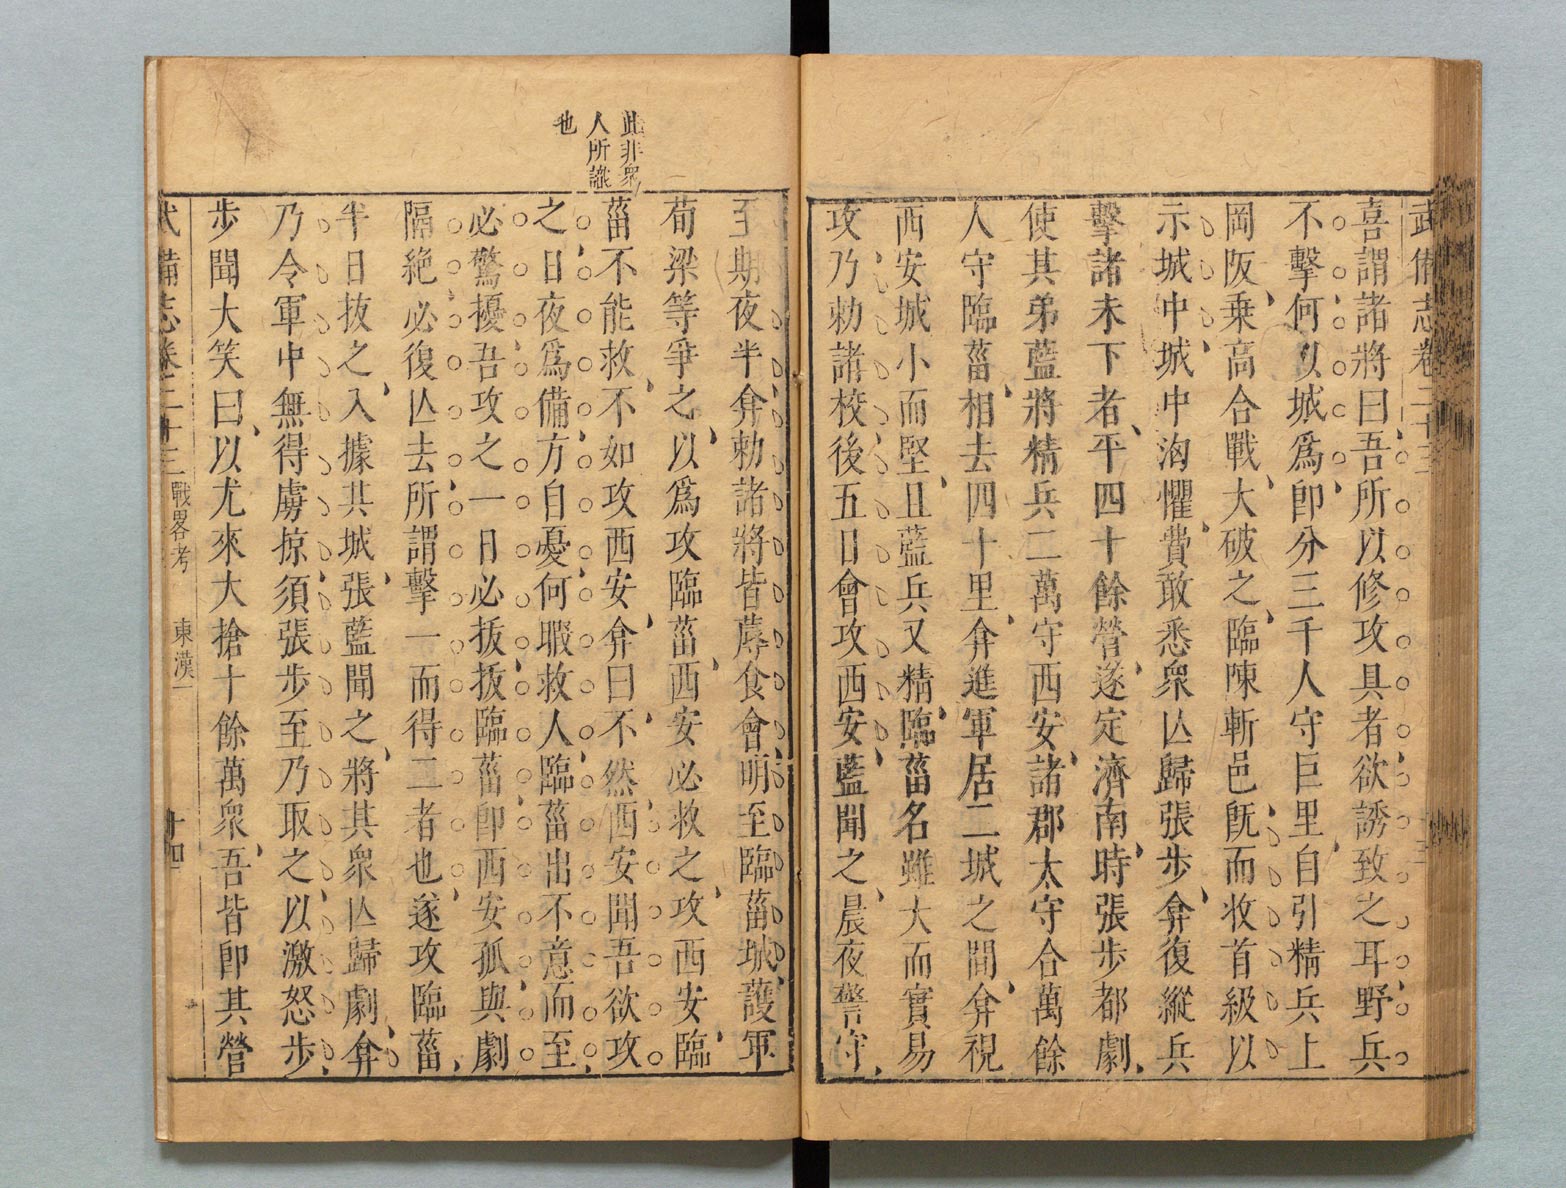 武備志卷二十三
喜謂諸將曰吾所以修攻具者欲誘致之耳野兵
不擊何以城爲卽分三千人守巨里自引精兵上
岡阪乗高合戰大破之臨陳斬邑旣而收首級以
示城中城中洶懼費敢悉衆亾歸張步弇復縱兵
擊諸未下者平四十餘營遂定濟南時張步都劇
使其弟藍將精兵二萬守西安諸郡太守合萬餘
人守臨菑相去四十里弇進軍居二城之間弇視
西安城小而堅且藍兵又精臨菑名雖大而實易
攻乃勑諸校後五日會攻西安藍聞之晨夜警守
至期夜半弇勑諸將皆蓐食會明至臨菑城護軍
荀梁等爭之以爲攻臨菑西安必救之攻西安臨
菑不能救不如攻西安弇曰不然西安聞吾欲攻
之日夜爲備方自憂何暇救人臨菑出不意而至
必驚擾吾攻之一日必拔拔臨菑卽西安孤與劇
隔絶必復亾去所謂擊一而得二者也遂攻臨菑
半日拔之入據其城張藍聞之將其衆亾歸劇弇
乃令軍中無得虜掠須張步至乃取之以激怒步
步聞大笑曰以尤來大搶十餘萬衆吾皆卽其營
武備志卷二十三 戰畧考 東漢一 十四
此非衆
人所識
也